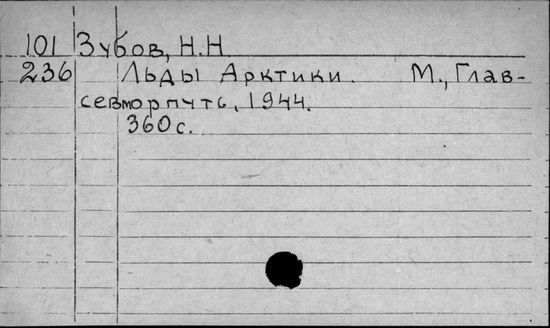 101 Зубов, Н.Н.
236 Льды Арктики. М., Глав-
севморпуть, 1944.
360 с.